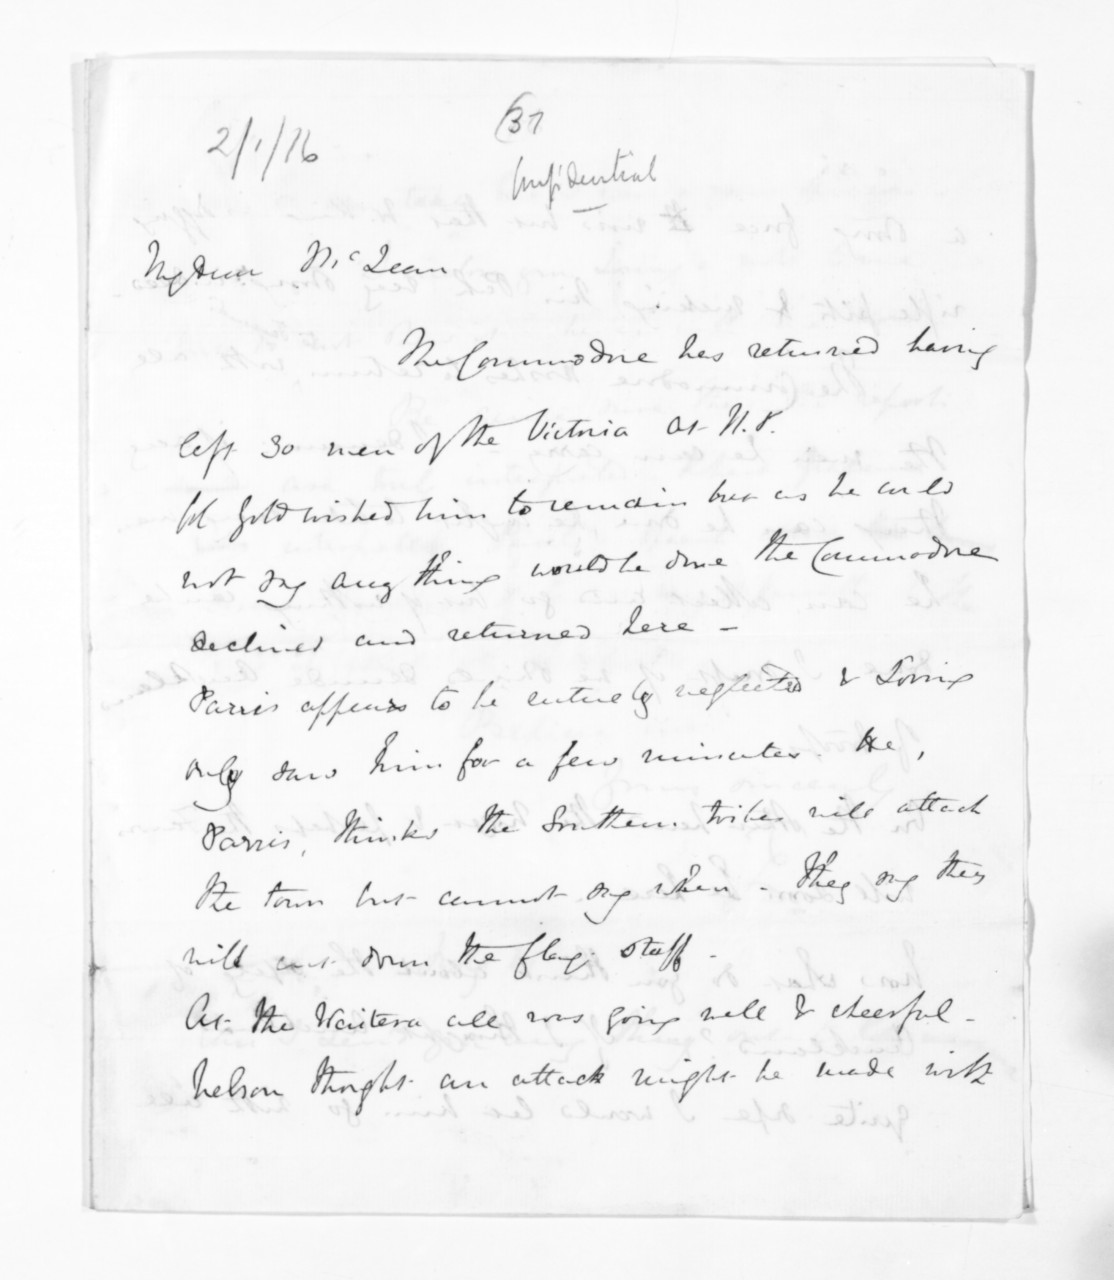 2/1/76
37
Confidential
My dear McLean
The Commodore has returned having
left 30 men of the Victoria at N.P.
Col Gold wished him to remain but as he could
not say any thing would be done the Commodore
declined and returned here -
Parris appears to be entirely neglected &
only saw him for a few minutes. He,
Parris, thinks the Southern tribes will attack
the town but cannot say when - They say they
will cut down the flag staff -
At the Waitera all was going well & cheerful -
Nelson thought an attack might be made with